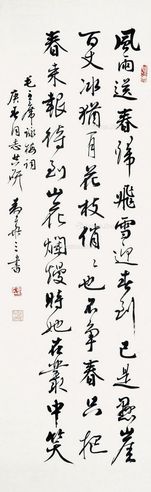 風雨送春歸飛雪迎春到已是懸崖
百丈冰猶有花枝俏〻也不争春只把
春来報待到山花爛熳時她在叢中笑
毛主席詠梅词
同志共研
書